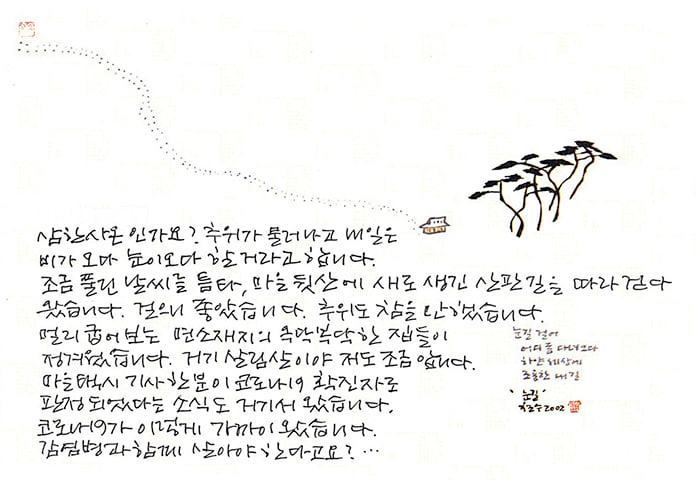 삼한사온 인가요? 추위가 물러나고 내일은
비가 오다 눈이 오다 할 거라고 합니다.
조금 풀린 날씨를 틈타, 마을 뒷산에 새로 생긴 산판길을 따라 걷다
왔습니다. 걸으니 좋았습니다. 추위도 참을 만했습니다.
멀리 굽어보는 면소재지의 옥닥복닥한 집들이
정겨웠습니다. 거기 살림살이야 저도 조금 압니다.
마을택시 기사 한분이 코로나19 확진자로
판정되었다는 소식도 거기서 왔습니다.
코로나19가 이렇게 가까이 왔습니다.
감염병과 함께 살아야 한다고요? …
눈길 걸어
어디쯤 다녀오다
하얀 세상에
조용한 내 길
'눈길'
2002